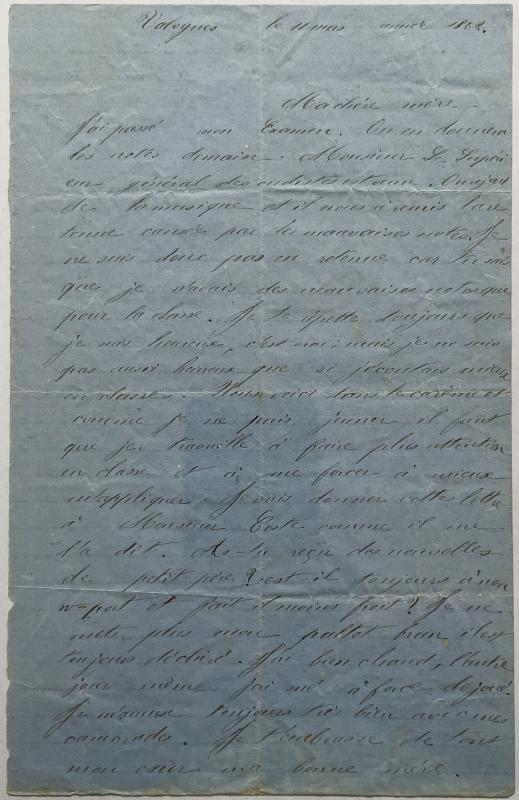 Valognes le 11 mars année 1862.
Ma chère mère.
J'ai passé mon Examen. On en donnera
les notes demain. Monsieur Le Supéri
eur général des eudistes est venu. On a joué
de la musique et il nous à remis la re
tenue causée par les mauvaises notes. Je
ne suis donc pas en retenue car tu sais
que je n'avais des mauvaises notes que
pour la classe. Je te répette toujours que
je suis heureux, c'est vrai; mais je ne suis
pas aussi heureux que si j'écoutais mieux
en classe. Nous voici dans le carême et
comme je ne puis jeuner il faut
que je travaille à faire plus attention
en classe et à me forcer à mieux
m'appliquer. Je vais donner cette lettre
à Monsieur Coste comme il me
l'a dit. As-tu reçu des nouvelles
de petit père? est-il toujours à new
port et fait il moins froit? Je ne
mets plus mon paltot brun il est
toujours déchiré. J'ai bien chaud, l'autre
jour même j'ai sué à force de joué.
Je m'amuse toujours très bien avec mes
camarades. Je t'embrasse de tout
mon cœur ma bonne mère.